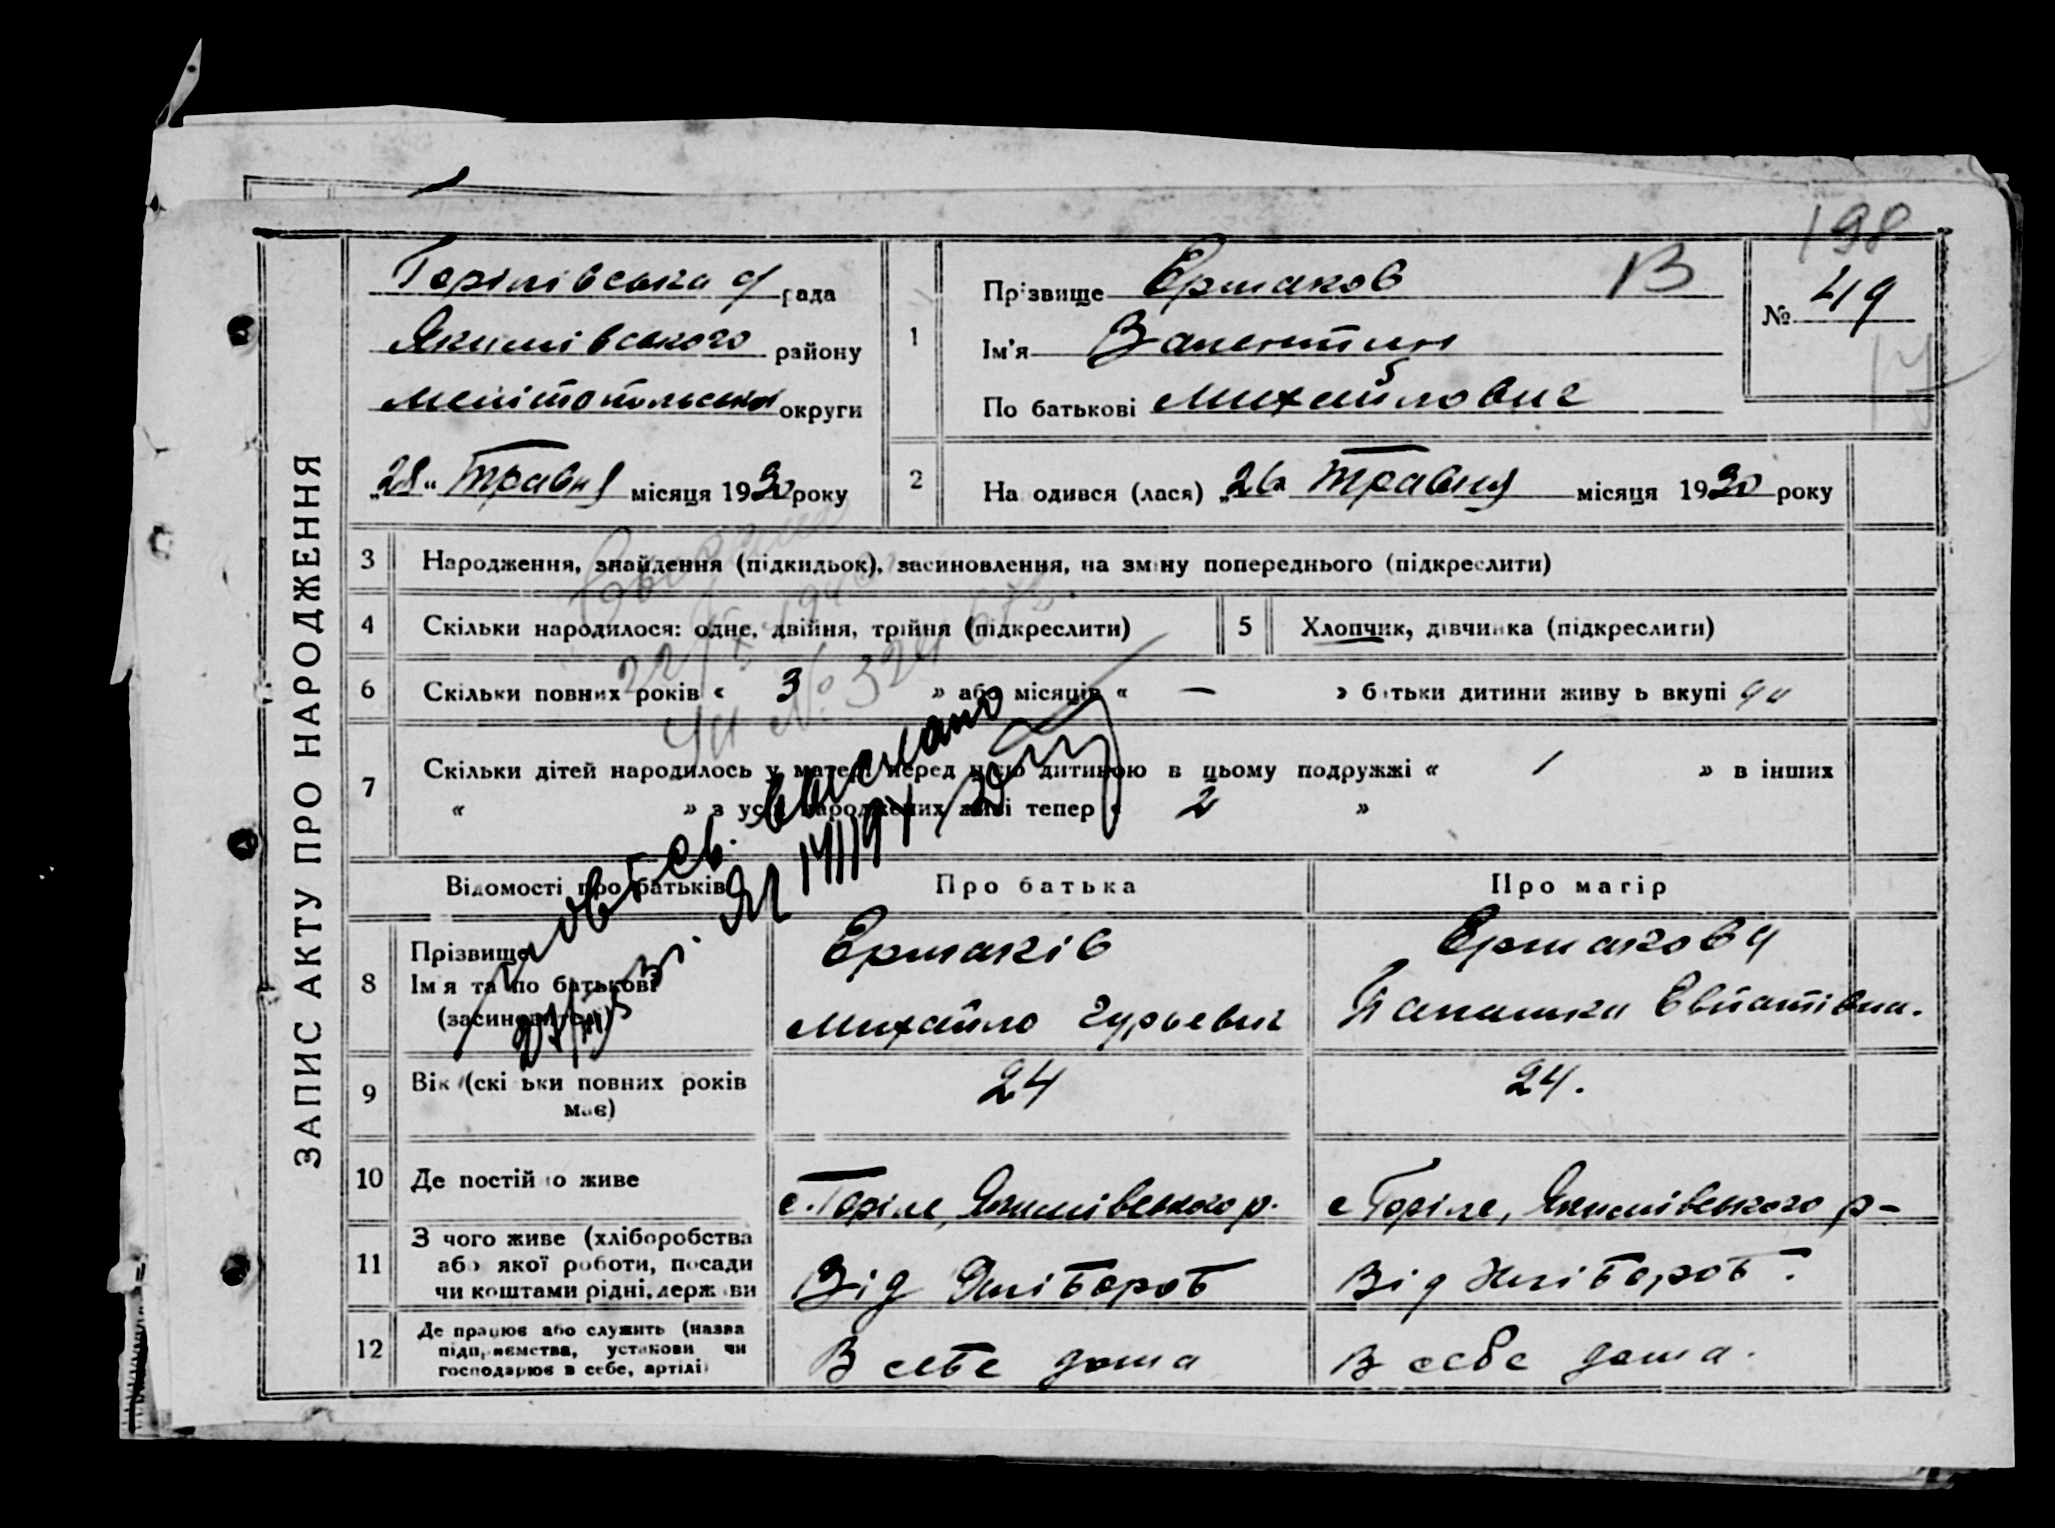 ЗАПИС АКТУ ПРО НАРОДЖЕННЯ
198
Горілівська с/рада
Якимівського району
Мелітопольської округи
„28“ Травня місяця 1930 року
1
Прізвище Ермаков В
Ім'я Валентин
По батькові Михайлович
№ 49
2
Народився (лася) „26“ Травня місяця 1930 року
3 Народження, знайдення (підкидьок), засиновлення, на зміну попереднього (підкреслити)
4 Скільки народилося: одне, двійня, трійня (підкреслити)
5 Хлопчик, дівчинка (підкреслити)
6 Скільки повних років « 3 » або місяців « — » батьки дитини живуть вкупі
7 Скільки дітей народилось у матері перед цією дитиною в цьому подружжі « 1 » в інших
« » з усіх народжених живі тепер « 2 »
Повт. св. выслано
Відомості про батьків
Про батька
Про матір
8 Прізвище
Ім'я та по батькові
(засиновителі)
Ермаків
Михайло Гурьевич
Ермакова
Палашка Евпатівна.
9 Вік (скільки повних років
має)
24
24.
10 Де постійно живе
с. Горіле, Якимівського р.
с Горіле, Якимівського р-
11 З чого живе (хліборобства
або якої роботи, посади
чи коштами рідні, держави
Від Хлібороб
Від Хлібороб.
12 Де працює або служить (назва
підприємства, установи чи
господарює в себе, артілі)
В себе дома
В себе дома.